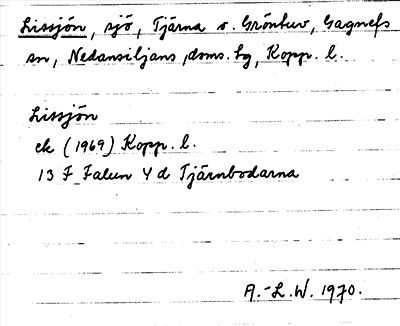 Lissjön, sjö, Tjärna o. Gröntuv, Gagnefs
sn, Nedansiljans, doms. tg, Kopp. l.
Lissjön
ek (1969) Kopp. l.
13 F Falun 4 d Tjärnbodarna
A.-L.W. 1970.